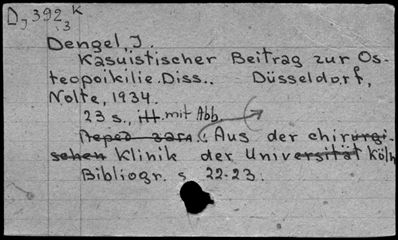 D, 392 K
.3
Dengel, J.
Kasuistischer Beitrag zur Os-
teopoikilie. Diss.. Düsseldorf,
Nolte, 1934.
23 s., ill. mit Abb.
Перед загл.: Aus der chirurgi-
schen Klinik der Universität Köln
Bibliogr. s. 22-23.